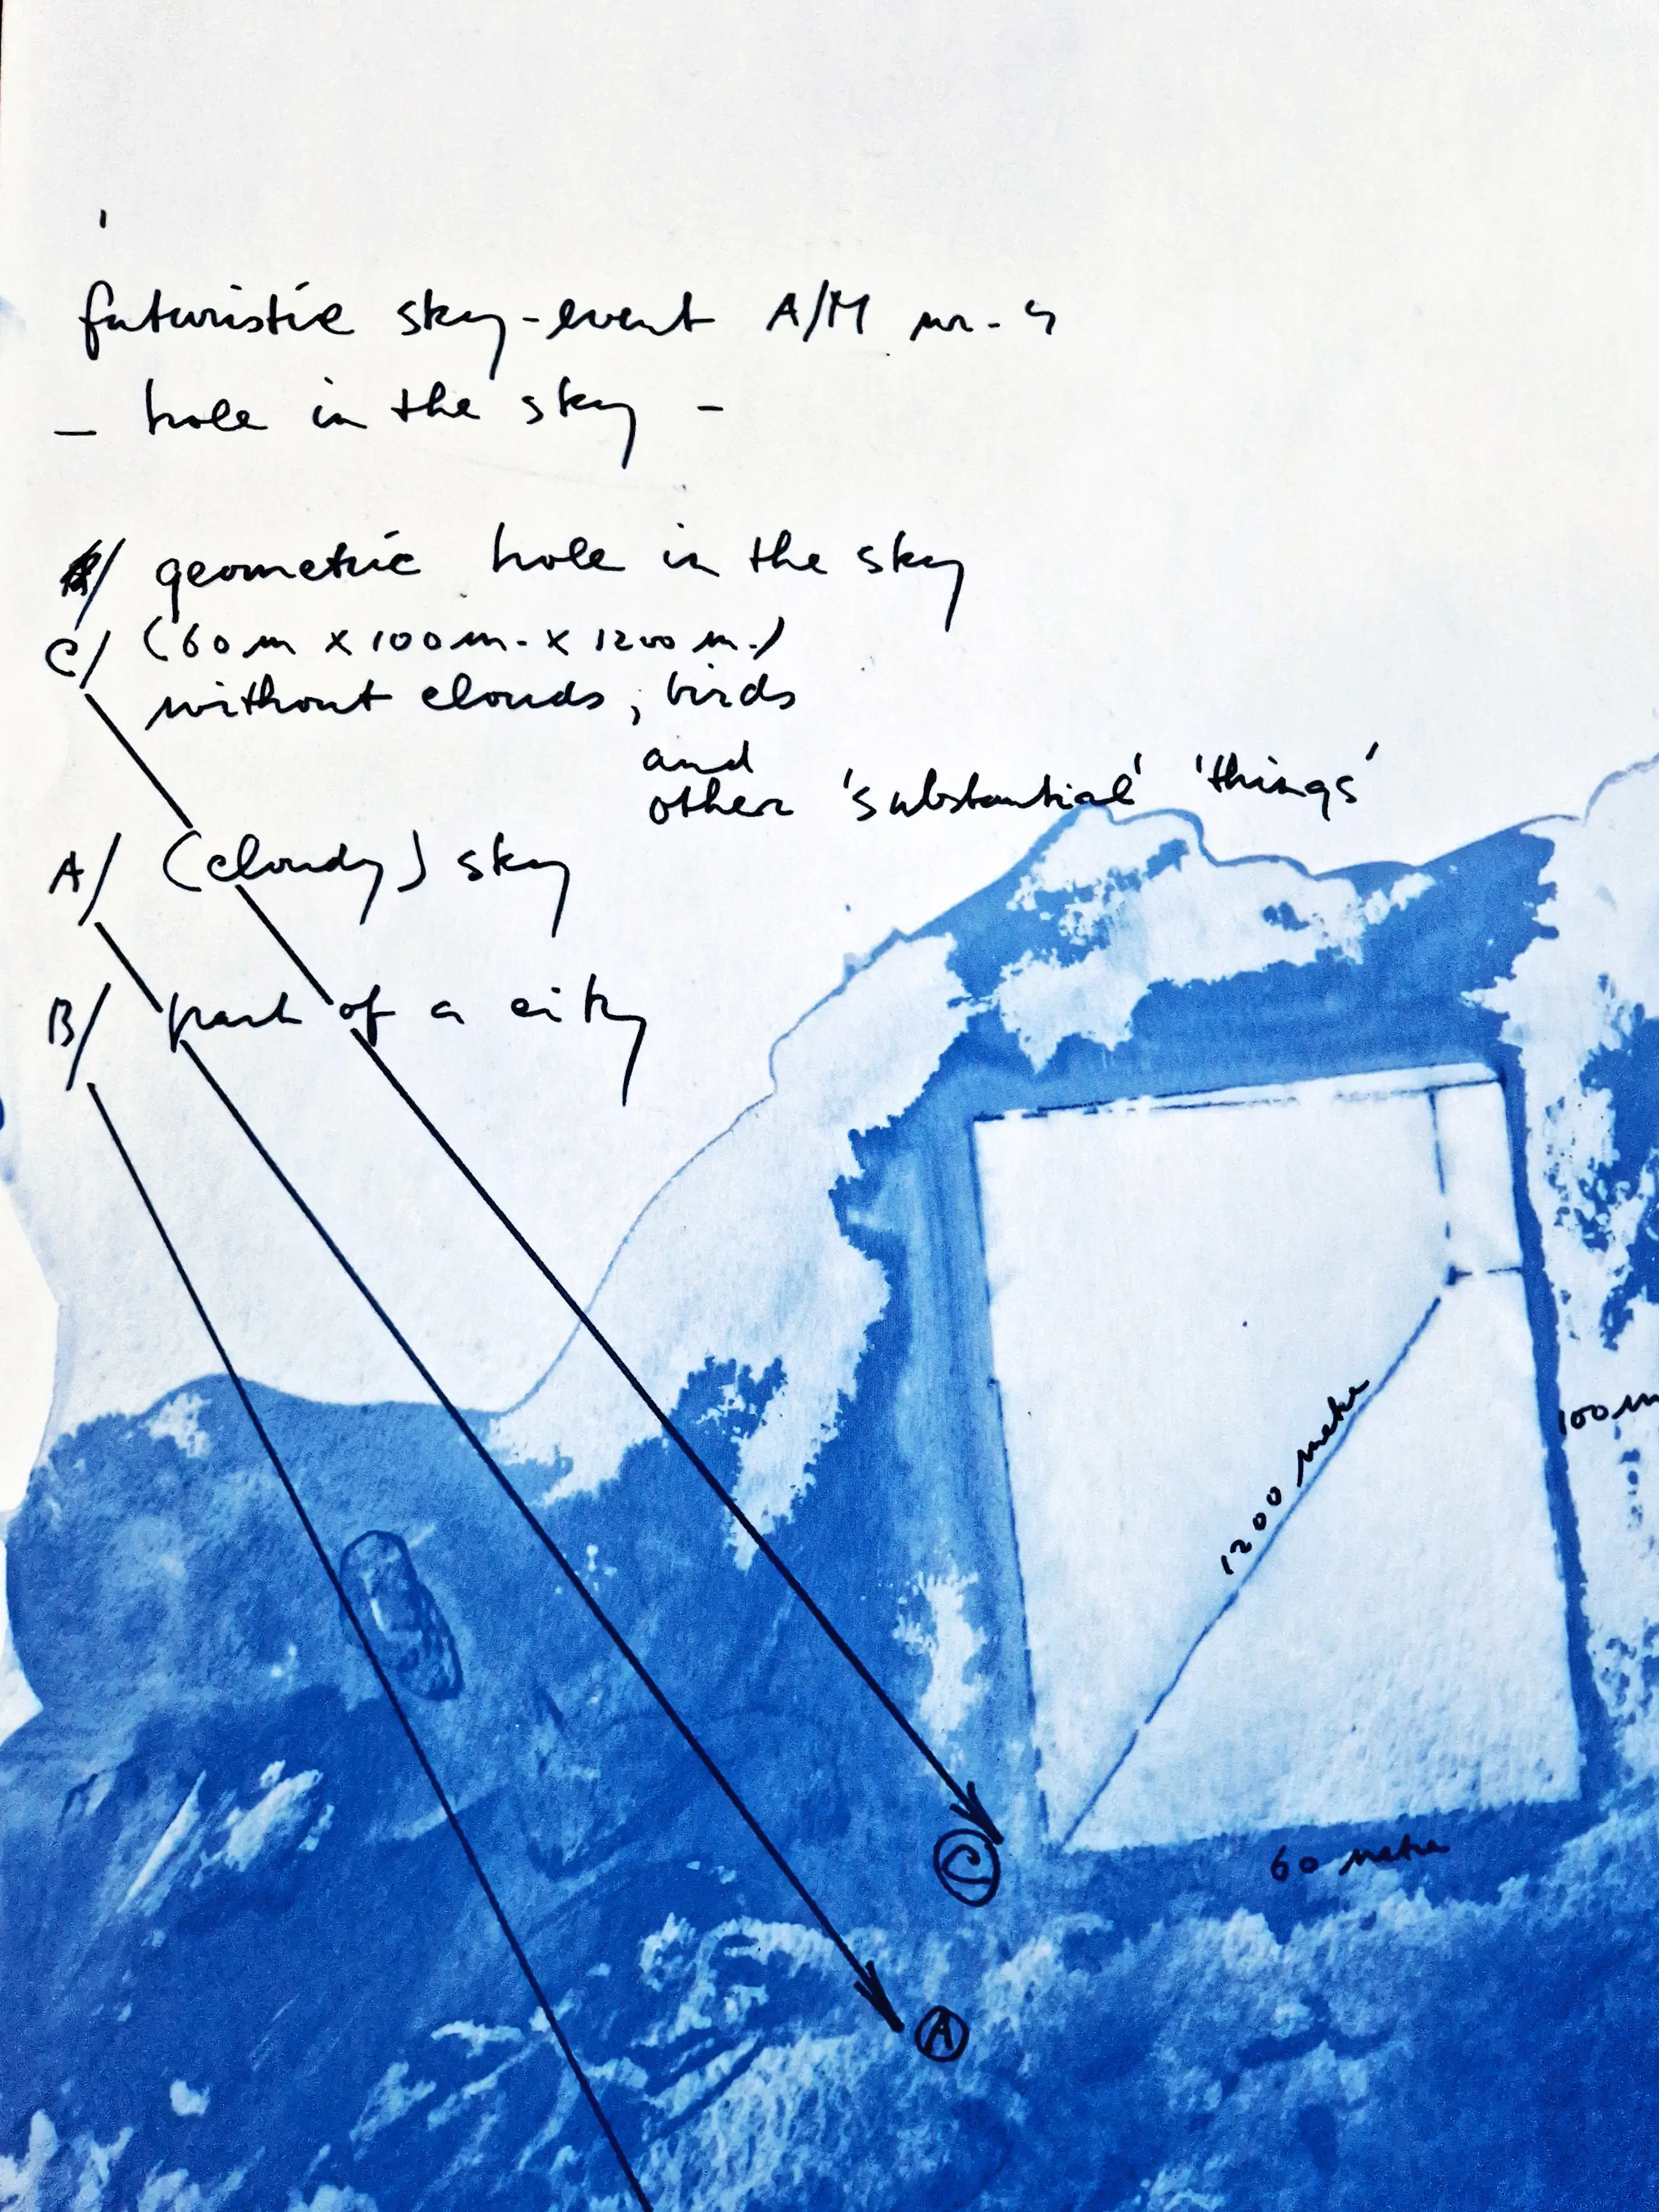 futuristic sky-event A/M nr-
- hole in the sky -
geometric hole in the sky
C/ (60 m x 100 m. x 1200 m.)
without clouds, birds
and
other 'substantial' 'things'
A/ (cloudy) sky
B/ part of a city
100 m
1200 metre
60 metre
C
A